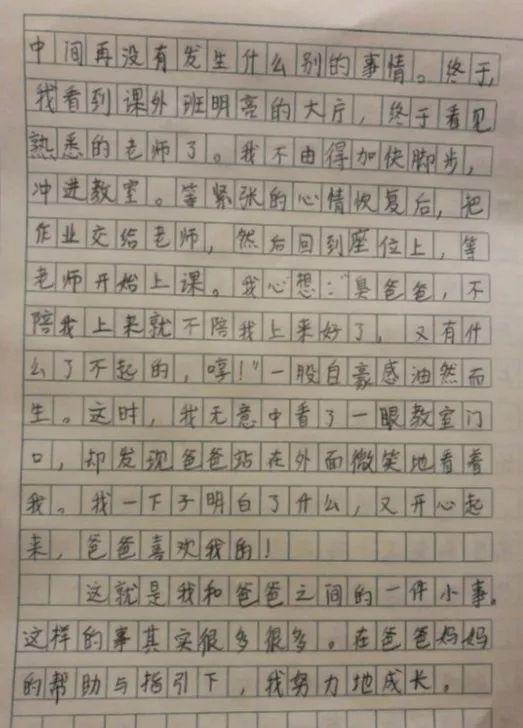 中间再没有发生什么别的事情。终于,
我看到课外班明亮的大厅，终于看见
熟悉的老师了。我不由得加快脚步，
冲进教室。等紧张的心情恢复后，把
作业交给老师，然后回到座位上，等
老师开始上课。我心想："臭爸爸，不
陪我上来就不陪我上来好了，又有什
么了不起的，哼!"一股自豪感油然而
生。这时，我无意中看了一眼教室门
口，却发现爸爸站在外面微笑地看着
我。我一下子明白了什么，又开心起
来，爸爸喜欢我的!
这就是我和爸爸之间的一件小事。
这样的事其实很多很多。在爸爸妈妈
的帮助与指引下，我努力地成长。